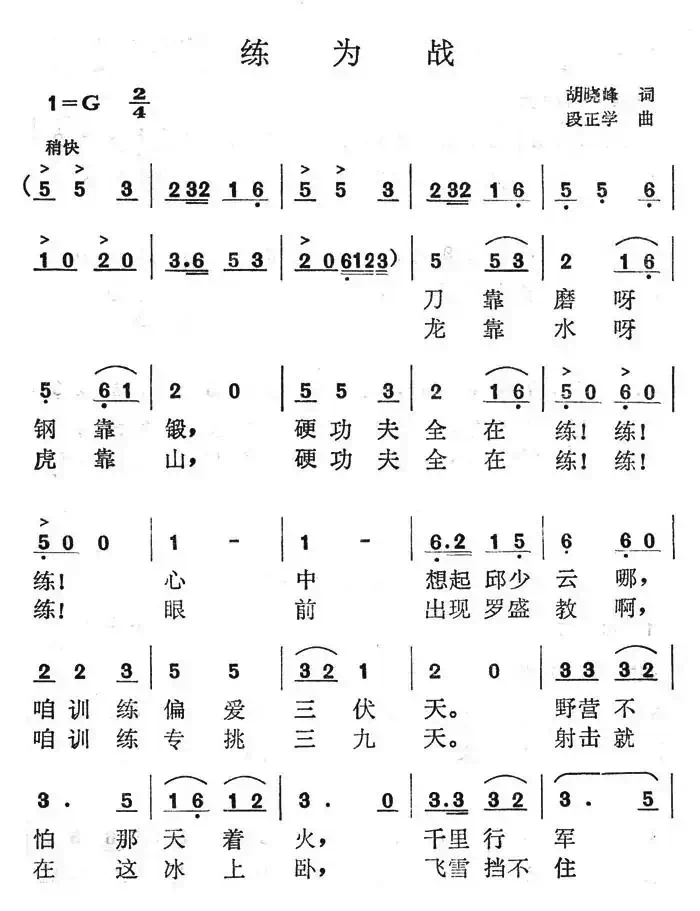 练为战
1=G 2/4
胡晓峰 词
段正学 曲
稍快
(5 5 3 | 232 1 6 | 5 5 3 | 232 1 6 | 5 5 6 |
10 20 | 3.6 53 | 2 06123) | 5 53 | 2 16 |
刀靠磨呀
龙靠水呀
5 61 | 2 0 | 5 5 3 | 2 16 | 50 60 |
钢靠锻，硬功夫全在练！练！
虎靠山，硬功夫全在练！练！
50 0 | 1 - | 1 - | 6.2 15 | 6 60 |
练！心中想起邱少云哪，
练！眼前出现罗盛教啊，
2 2 3 | 5 5 | 32 1 | 2 0 | 33 32 |
咱训练偏爱三伏天。野营不
咱训练专挑三九天。射击就
3. 5 | 16 12 | 3. 0 | 3.3 32 | 3. 5 |
怕那天着火，千里行军
在这冰上卧，飞雪挡不住